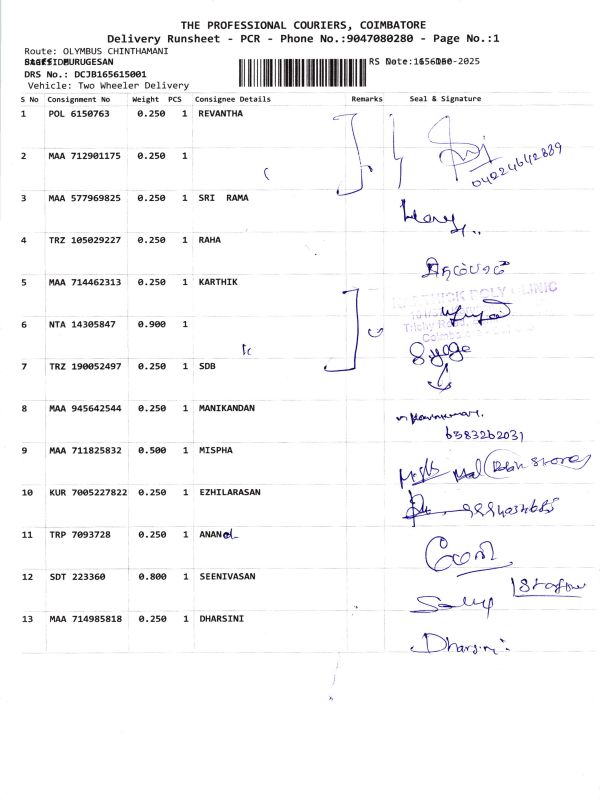 THE PROFESSIONAL COURIERS, COIMBATORE
Delivery Runsheet - PCR - Phone No.:9047080280 - Page No.:1
Route: OLYMBUS CHINTHAMANI
MURUGESAN
DRS No.: DCJB165615001
Vehicle: Two Wheeler Delivery
S No Consignment No Weight PCS Consignee Details Remarks Seal & Signature
1 POL 6150763 0.250 1 REVANTHA
2 MAA 712901175 0.250 1
3 MAA 577969825 0.250 1 SRI RAMA
4 TRZ 105029227 0.250 1 RAHA
5 MAA 714462313 0.250 1 KARTHIK
6 NTA 14305847 0.900 1
7 TRZ 190052497 0.250 1 SDB
8 MAA 945642544 0.250 1 MANIKANDAN
6383262031
9 MAA 711825832 0.500 1 MISPHA
10 KUR 7005227822 0.250 1 EZHILARASAN
11 TRP 7093728 0.250 1 ANAND
12 SDT 223360 0.800 1 SEENIVASAN
13 MAA 714985818 0.250 1 DHARSINI
Dharsini